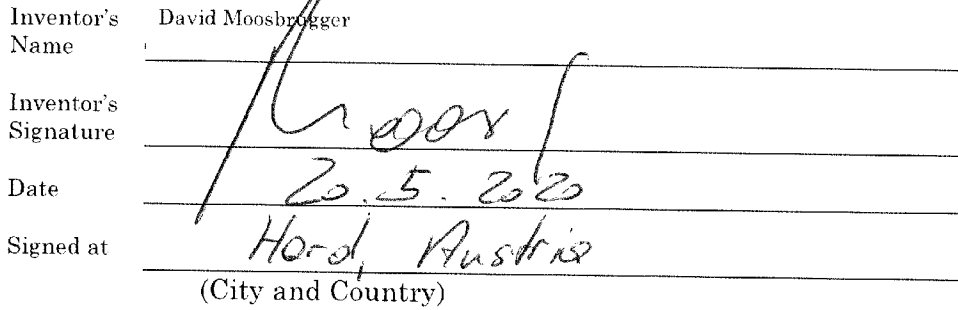 Inventor's Name David Moosbrugger
Inventor's Signature
Date 20.5.2020
Signed at Hard, Austria
(City and Country)